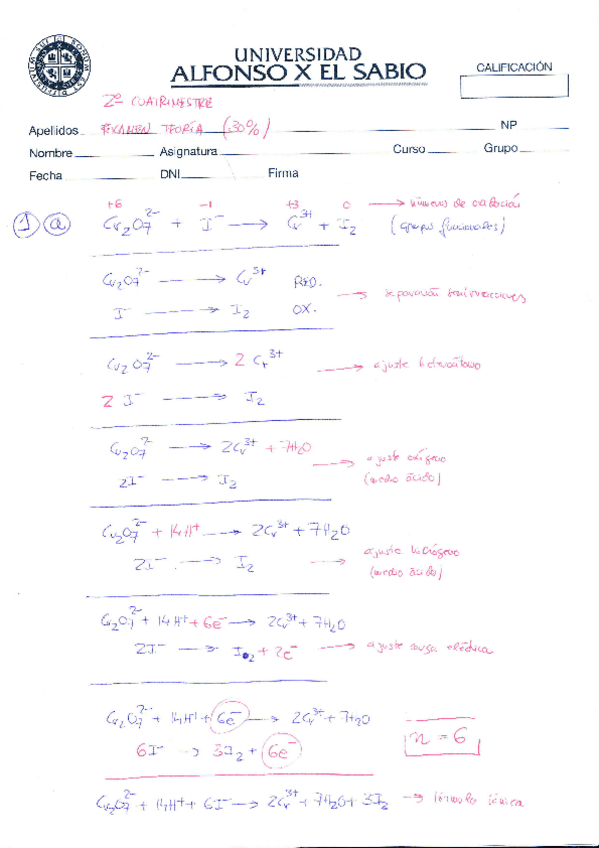 UNIVERSIDAD
ALFONSO X EL SABIO
CALIFICACIÓN
2º CUATRIMESTRE
Apellidos EXAMEN TEORÍA (30%) NP
Nombre Asignatura Curso Grupo
Fecha DNI Firma
+6 -1 +3 0 → números de oxidación
1 a Cr₂O₇²⁻ + I⁻ → Cr³⁺ + I₂ (grupos funcionales)
Cr₂O₇²⁻ → Cr³⁺ RED.
→ separación semirreacciones
I⁻ → I₂ OX.
Cr₂O₇²⁻ → 2Cr³⁺
→ ajuste heteroátomo
2 I⁻ → I₂
Cr₂O₇²⁻ → 2Cr³⁺ + 7H₂O
→ ajuste oxígeno
2I⁻ → I₂ (medio ácido)
Cr₂O₇²⁻ + 14H⁺ → 2Cr³⁺ + 7H₂O
ajuste hidrógeno
2I⁻ → I₂ → (medio ácido)
Cr₂O₇²⁻ + 14H⁺ + 6e⁻ → 2Cr³⁺ + 7H₂O
2I⁻ → I₂ + 2e⁻ → ajuste carga eléctrica
Cr₂O₇²⁻ + 14H⁺ + 6e⁻ → 2Cr³⁺ + 7H₂O
n = 6
6I⁻ → 3I₂ + 6e⁻
Cr₂O₇²⁻ + 14H⁺ + 6I⁻ → 2Cr³⁺ + 7H₂O + 3I₂ → fórmula iónica